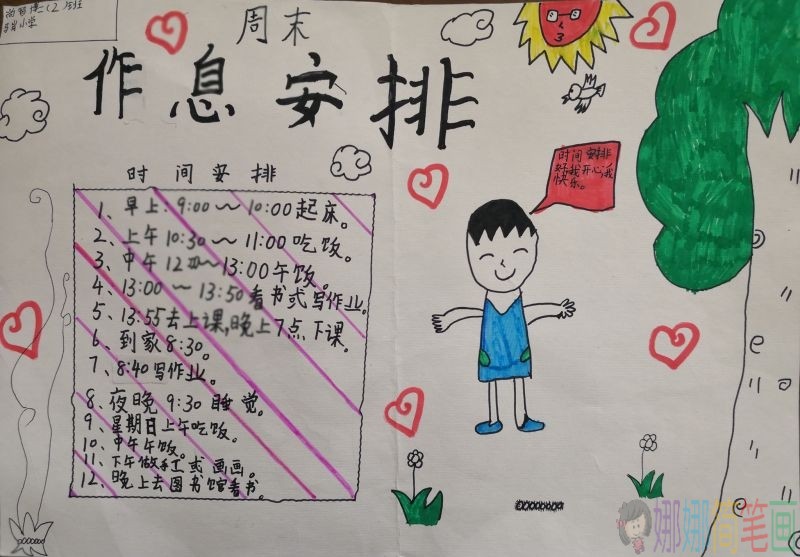 二(2)班
小学
周末
作息安排
时间安排
1、早上:9:00~10:00起床。
2、上午10:30~11:00吃饭。
3、中午12~13:00午饭。
4、13:00~13:50看书或写作业。
5、13:55去上课,晚上7点下课。
6、到家8:30。
7、8:40写作业。
8、夜晚9:30睡觉。
9、星期日上午吃饭。
10、中午午饭。
11、下午做手工或画画。
12、晚上去图书馆看书。
时间安排
好我开心,我
快乐。
娜娜简笔画